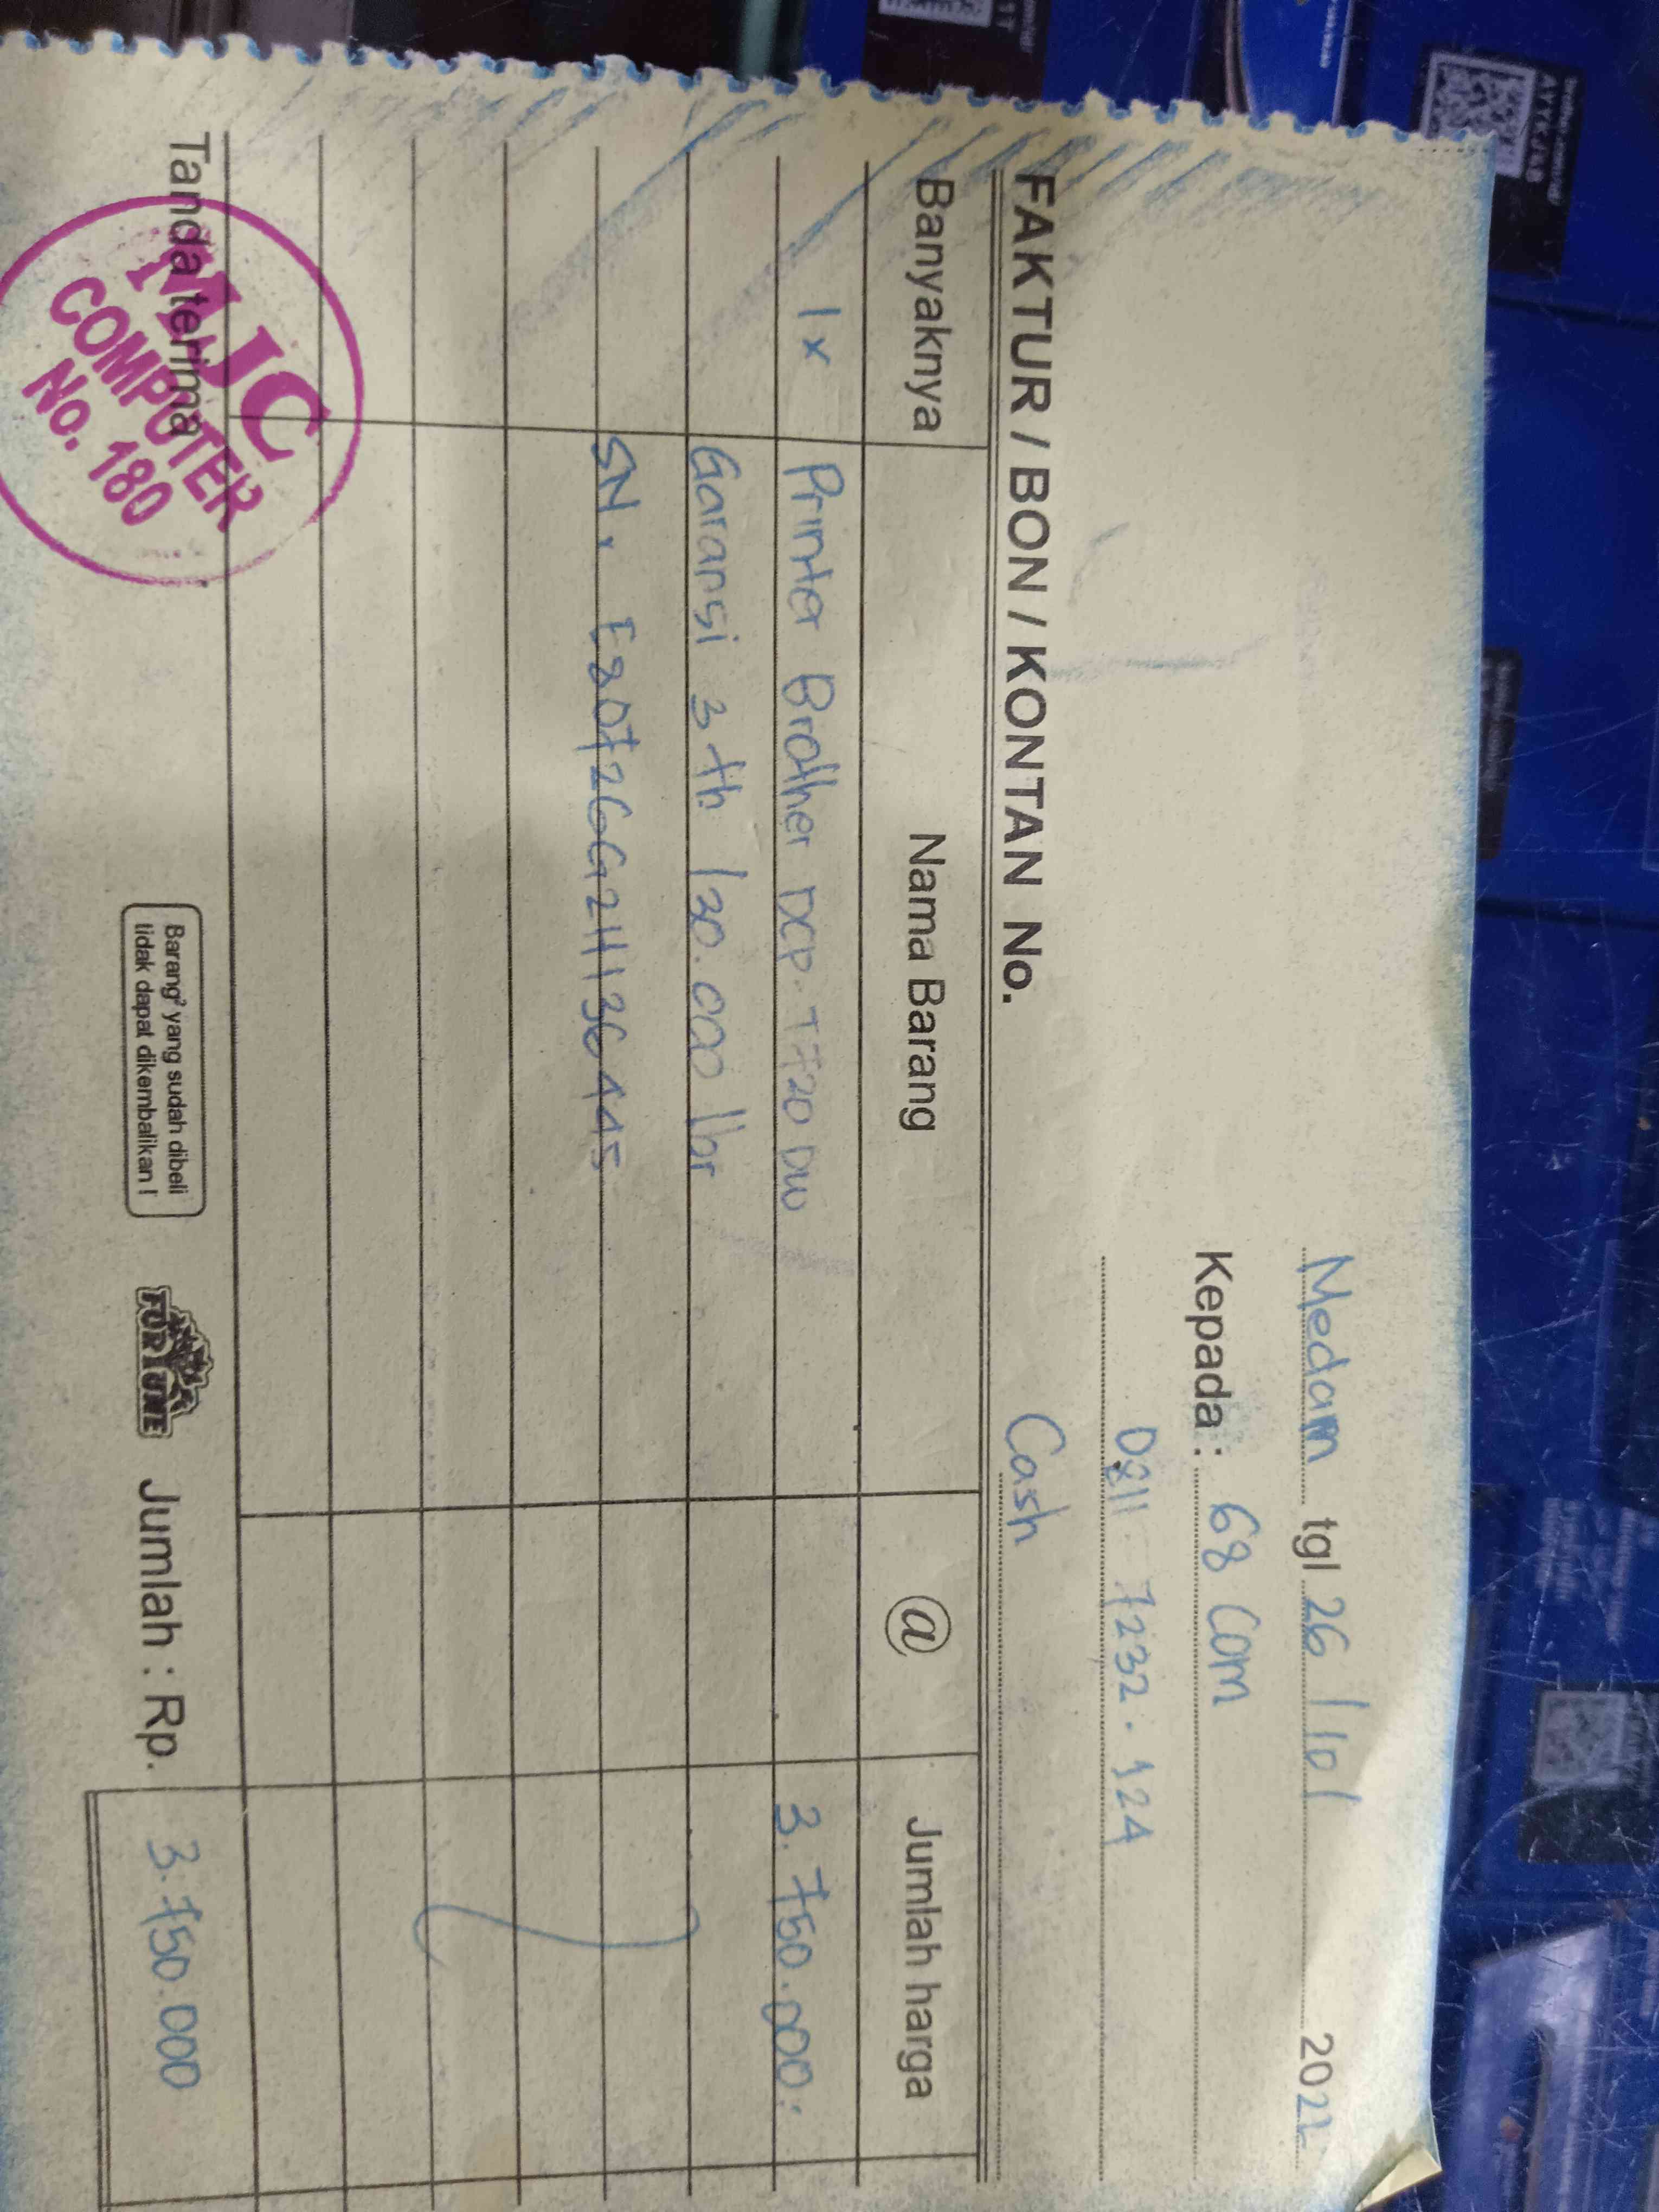 Medan tgl 26 / 10 / 2022
Kepada : 68 Com
0811 7232 . 124
Cash
FAKTUR / BON / KONTAN No.
Banyaknya Nama Barang @ Jumlah harga
1x Printer Brother DCP. T720 DW 3.750.000.-
Garansi 3 th / 30.000 lbr
SN.
Tanda terima
MJC
COMPUTER
No. 180
Barang² yang sudah dibeli
tidak dapat dikembalikan !
FORTUNE
Jumlah : Rp. 3.750.000